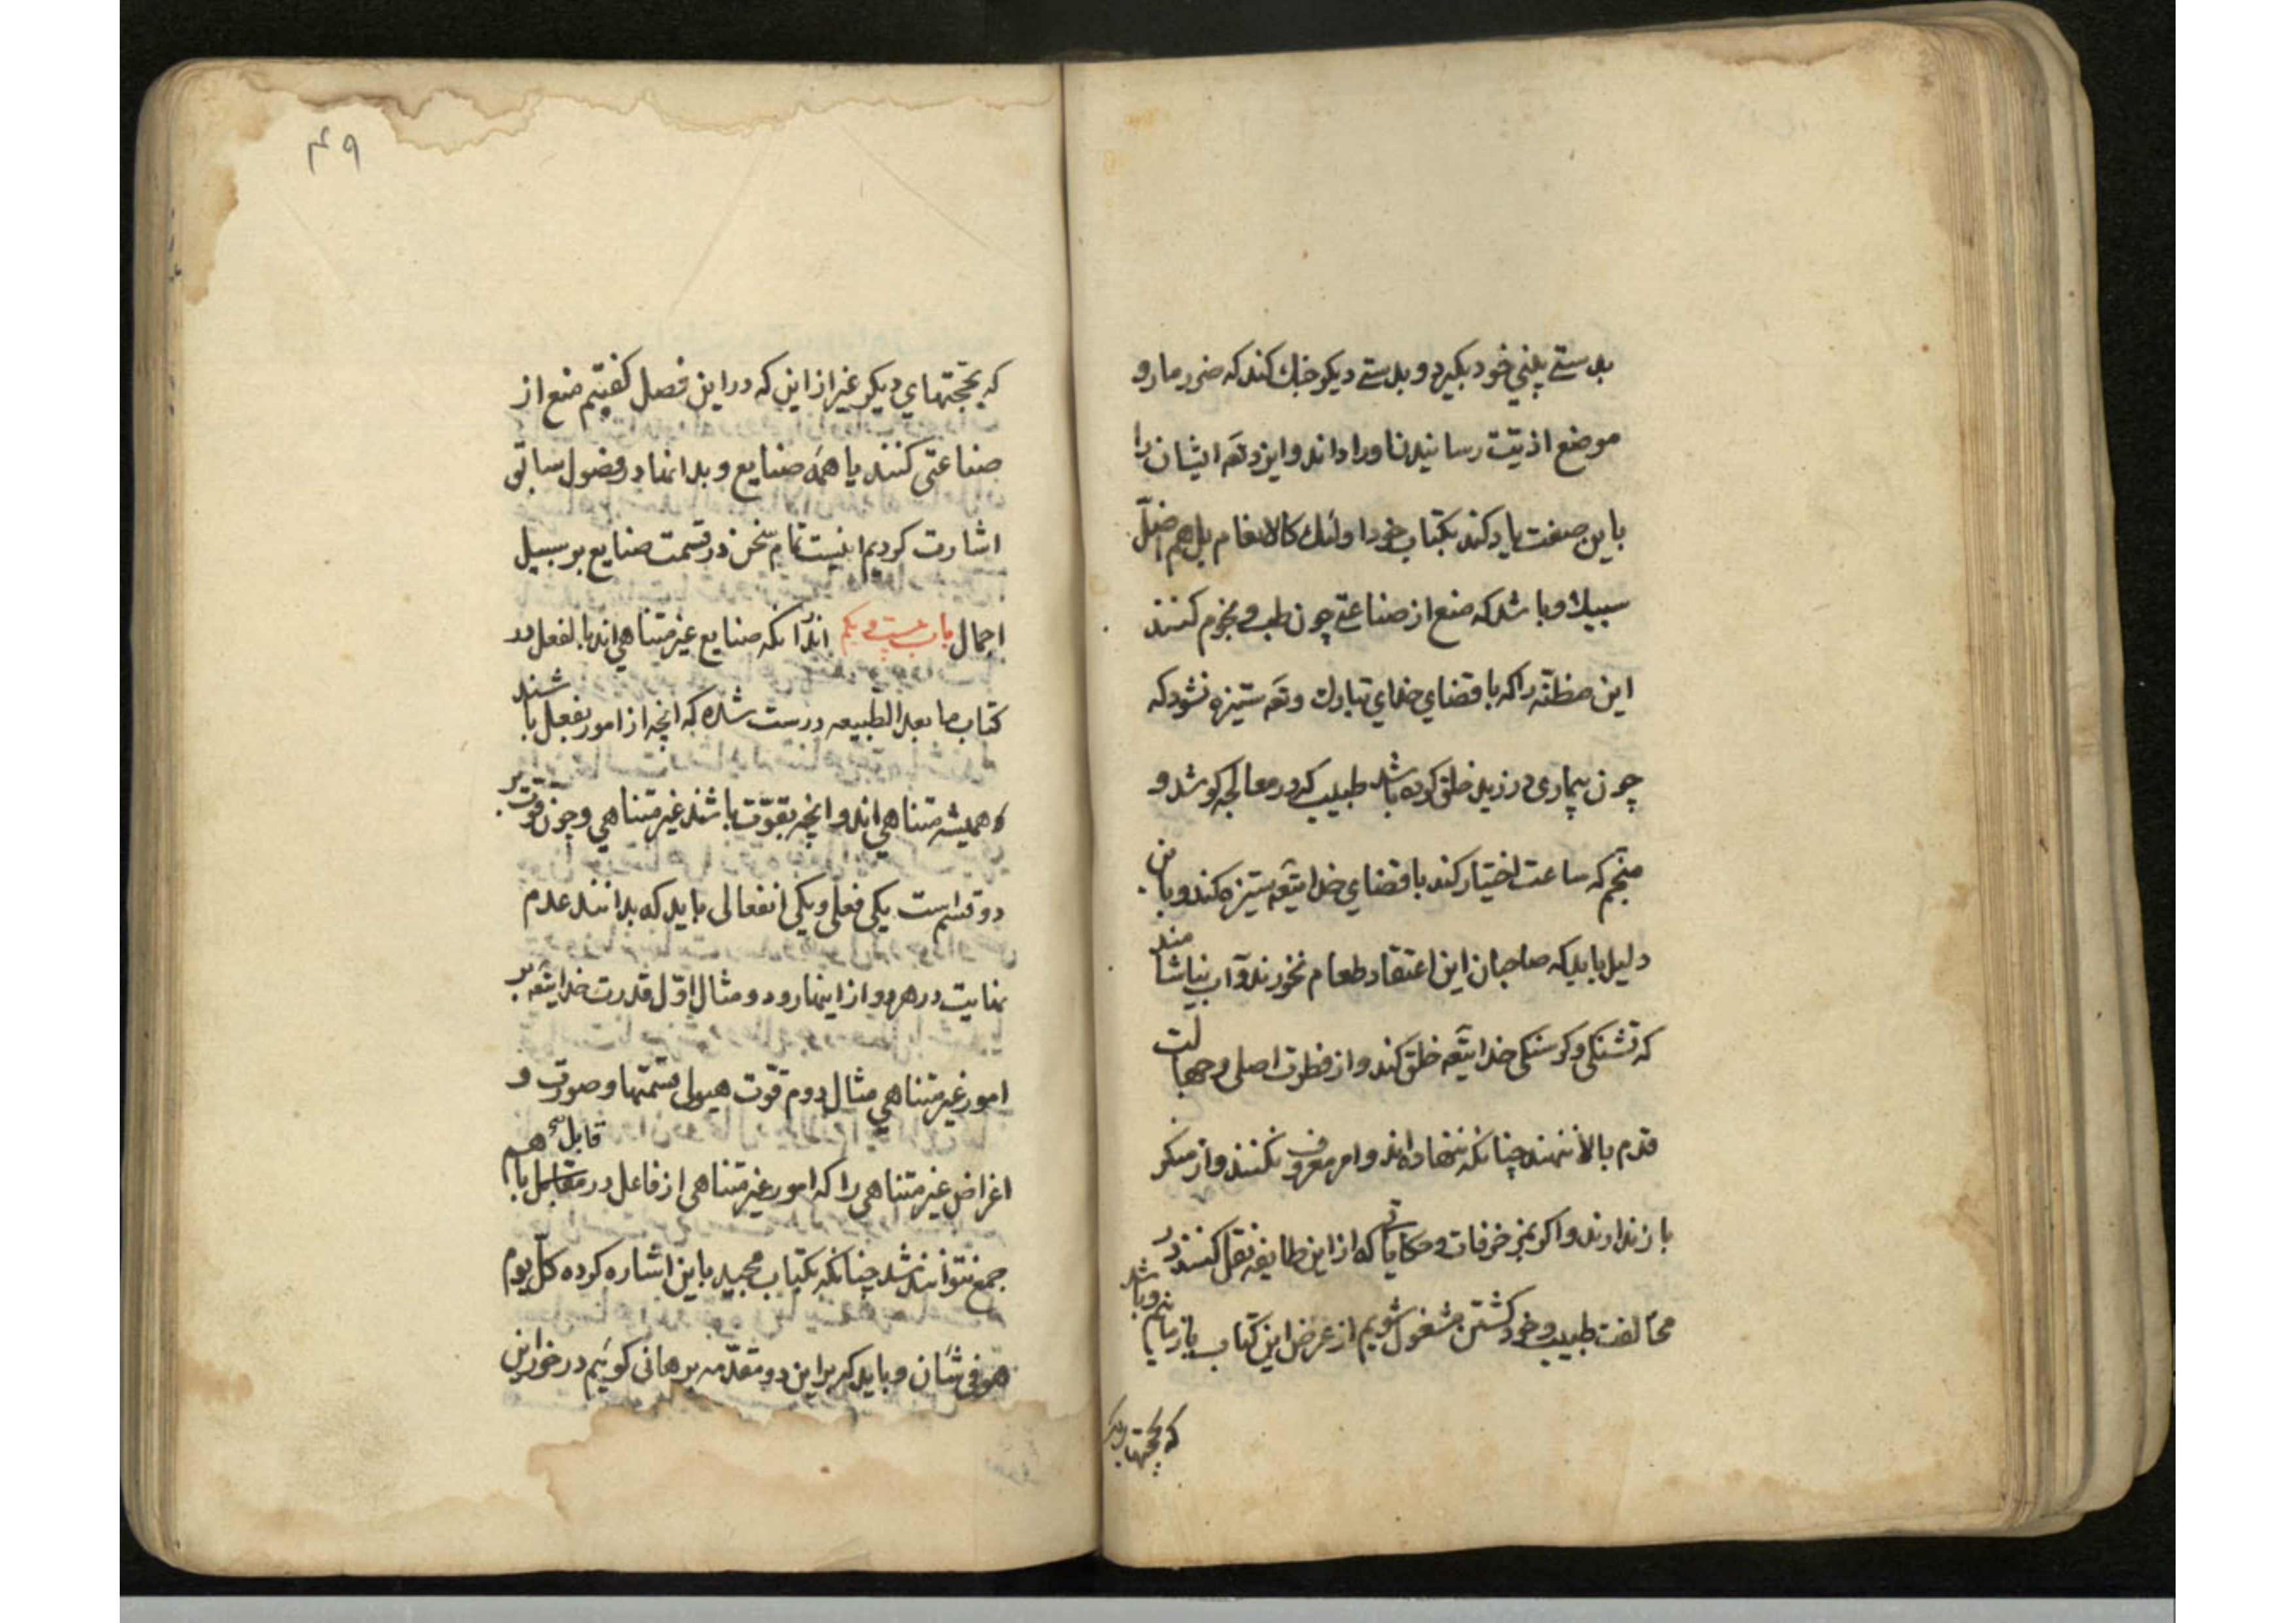 بدستے بینی خود بکیرد و بدستے دیکر خبك کند که ضرر ما رو
موضع اذیّت رسانیدن اورا داند و ایزد تعَ ایشان را
باین صفت یاد کند بکتاب خود اولئك کالانعام بل هم اضلّ
سبیلا و باشد که منع از صناعتے چون طب و نجوم کنند
این مظنّه را که با قضای خدای تبارك و تعَ ستیزه نشود که
چون بیماری در زید خلق کرده باشد طبیب که در معالجه کوشد و
منجّم که ساعت اختیار کند با قضای خدایتعَ ستیزه کند و باین
دلیل باید که صاحبان این اعتقاد طعام نخورند و آب نیاشامند
که تشنکی و کرسنکی خدایتعَ خلق کند و از فطرت اصلی و جهالت
قدم بالا ننهند چنانکه ننهاده اند و امر معروف نکنند و از منکر
باز ندارند و اکر بمزخرفات و حکایاتی که از این طایفه نقل کنند در
مخالفت طبیب و خود کشتن مشغول شویم از غرض این کتاب باز مانیم و باشد
که بحجتهای دیکر
۴۹
که بحجّتهای دیکر غیر از این که در این فصل کفتیم منع از
صناعتی کنند یا همهٔ صنایع و بدانها در فصول سابق
اشارت کردیم اینست تمام سخن در قسمت صنایع بر سبیل
اجمال باب بیست و یکم اندر آنکه صنایع غیر متناهی اند بالفعل در
کتاب ما بعد الطبیعه درست شده که آنچه از امور بفعل باشند
همیشه متناهی اند و آنچه بقوّت باشند غیر متناهی و چون قوّت بر
دو قسم است یکی فعلی و یکی انفعالی باید که بدانند عدم
نهایت در هر دو از اینها رود و مثال اوّل قدرت خدایتعَ بر
امور غیر متناهی مثال دوم قوّت هیولی قسمتها و صور و
اغراض غیر متناهی را که امور غیر متناهی از فاعل در قابل با هم
جمع نتوانند شد چنانکه بکتاب مجید باین اشاره کرده کلّ یوم
هو فی شان و باید که بر این دو مقدّمه برهانی کوئیم در خور این